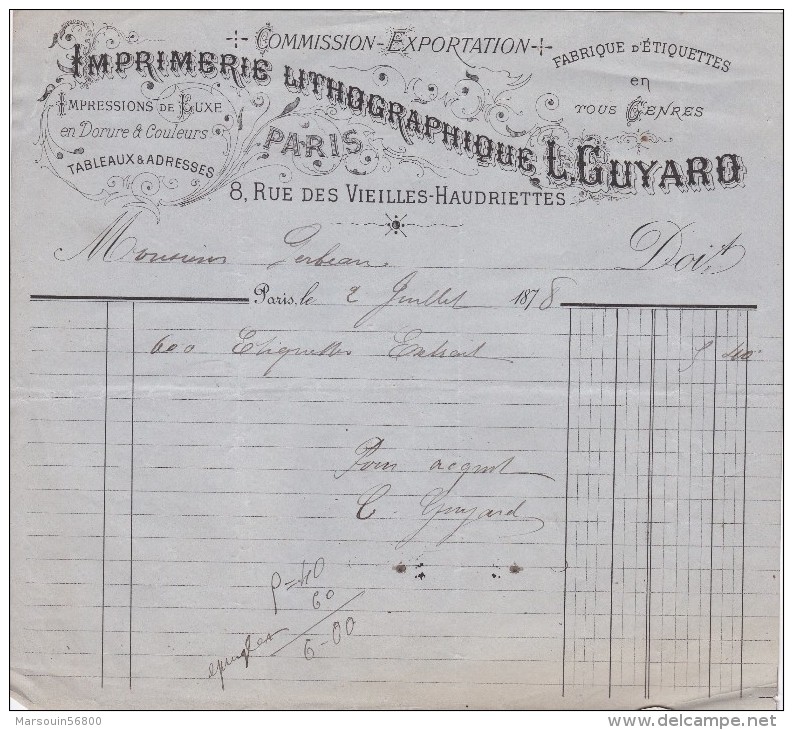 COMMISSION-EXPORTATION
IMPRIMERIE LITHOGRAPHIQUE L. GUYARD
FABRIQUE D'ÉTIQUETTES
en
TOUS GENRES
IMPRESSIONS DE LUXE
en Dorure & Couleurs
TABLEAUX & ADRESSES
PARIS
8, RUE DES VIEILLES-HAUDRIETTES
Monsieur Gerbeau Doit
Paris, le 2 Juillet 1878
600 Etiquettes Extrait 5 40
Pour acquit
L. Guyard
5=40
60
6-00
Marsouin56800
delcampe.net